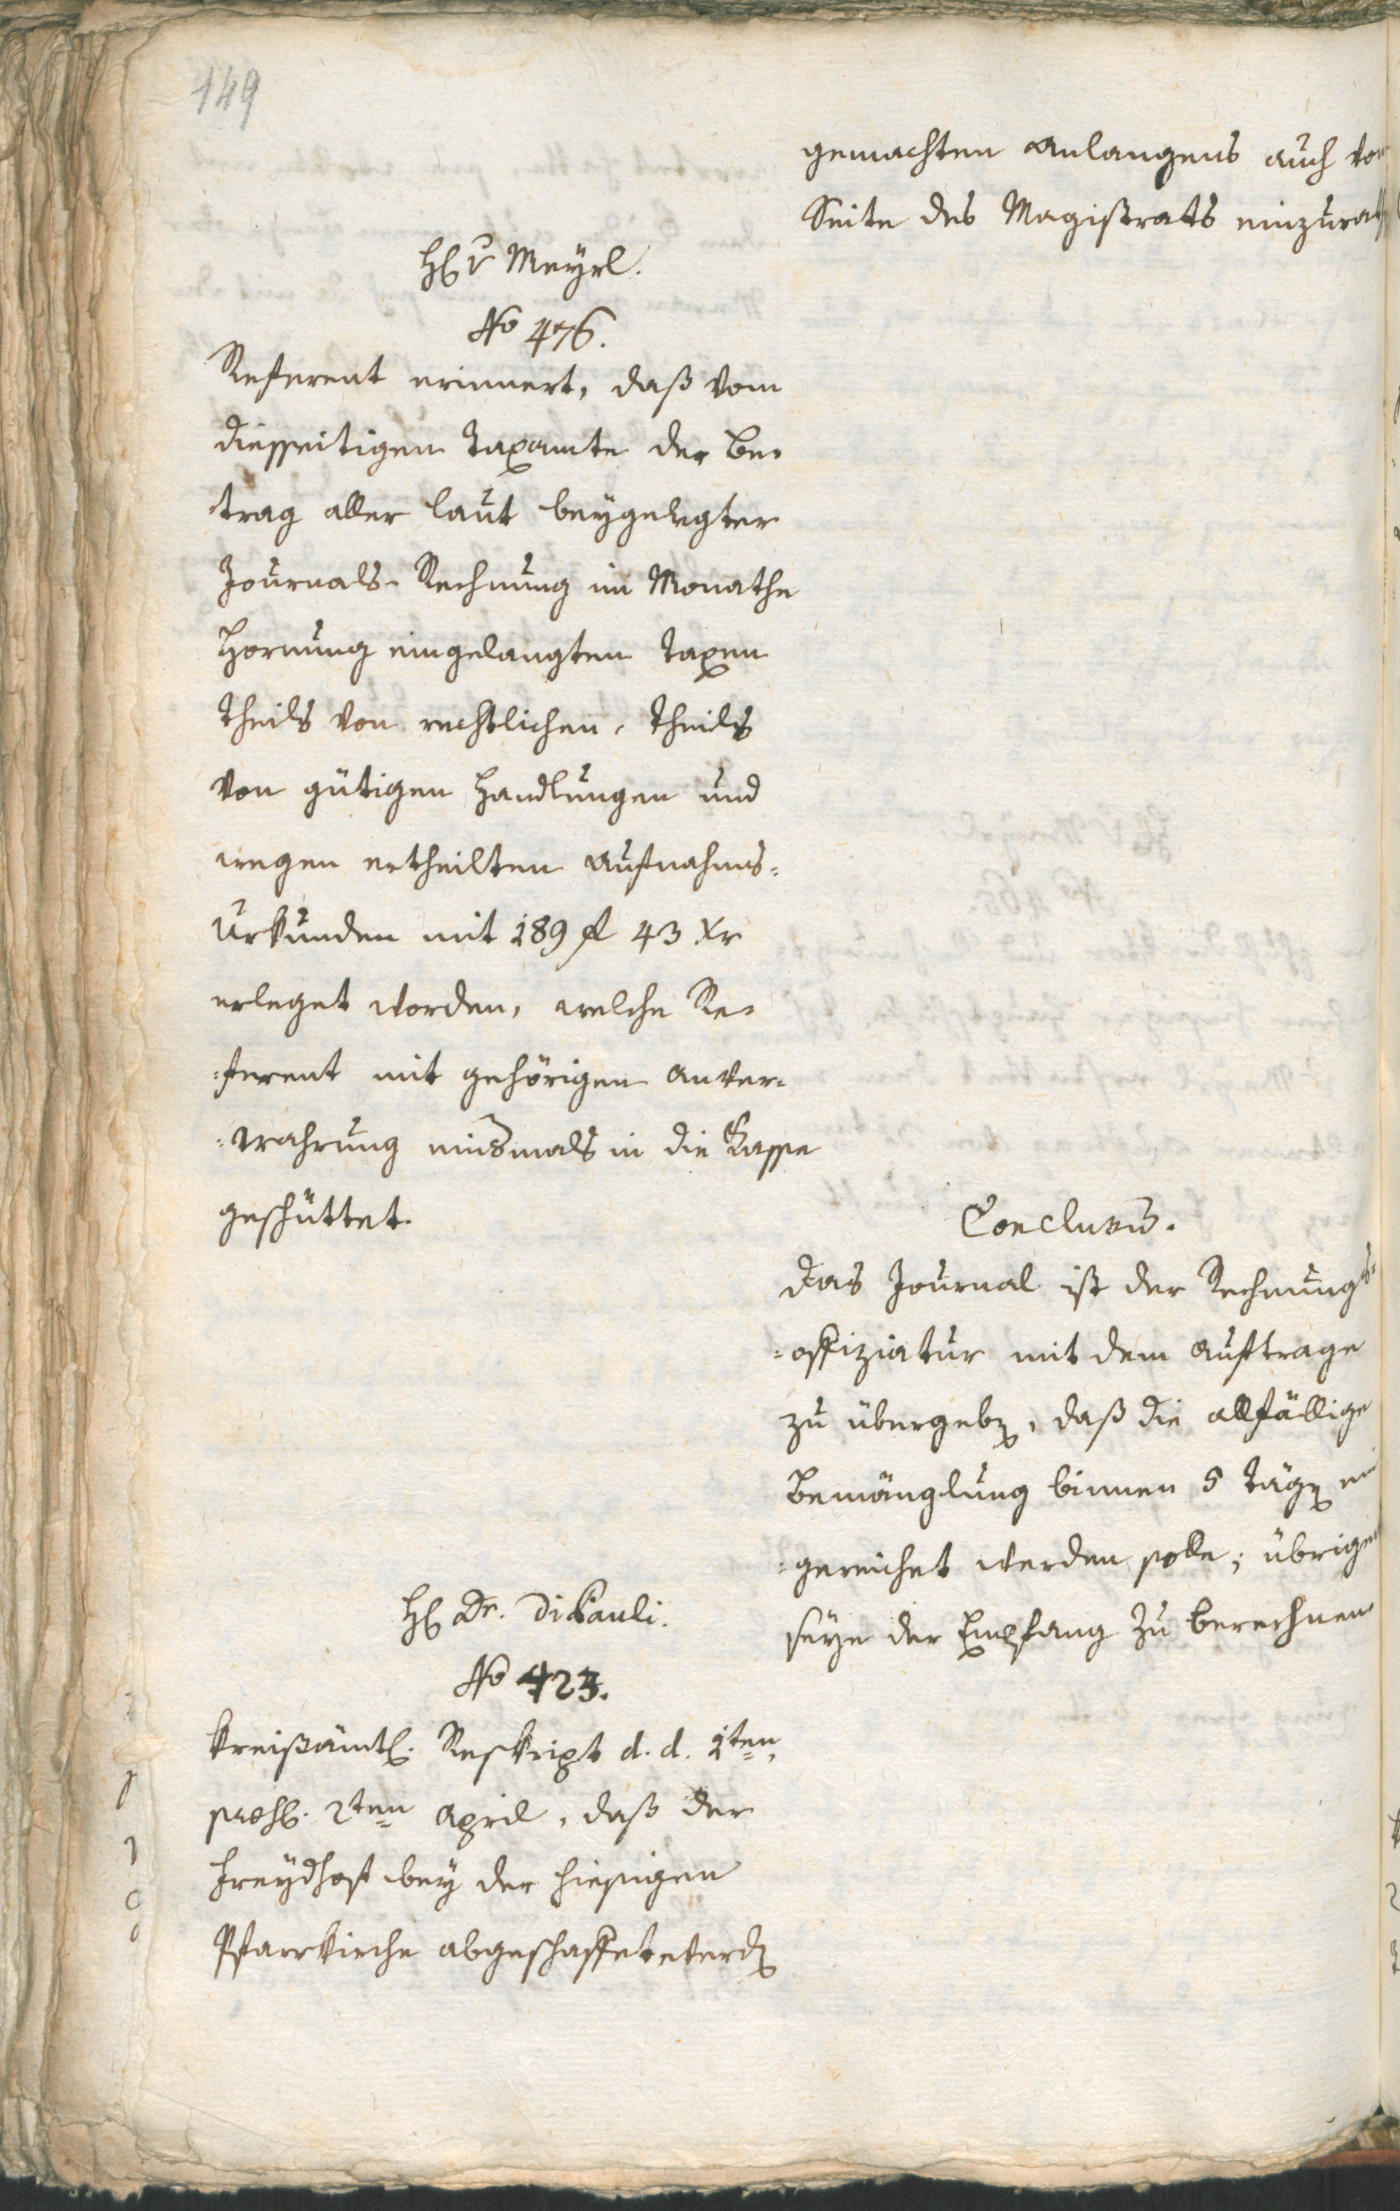 149
gemachten Anlangens auch von
Seite des Magistrats einzurath
H v Meyrl.
No 476.
Referent erinnert, daß vom
diesseitigen Taxamte der Be=
trag aller laut beygelegter
Journals-Rechnung im Monathe
Hornung eingelangten Taxen
theils von rechtlichen, theils
von gütigen Handlungen und
wegen ertheilten Aufnahms=
Urkunden mit 189 fl 43 Xr
erleget worden, welche Re=
=ferent mit gehörigen Anver=
=wahrung einsmals in die Kasse
geschüttet.
Conclusum.
Das Journal ist der Rechnungs=
=offiziatur mit dem Auftrage
zu übergeben, daß die allfällige
Bemänglung binnen 8 Tägen ein
=gereichet werden solle; übrigen
seye der Empfang zu berechnen
H Dr. Di Pauli.
No 423.
Kreißämtl. Reskript d. d. 1ten,
praes. 2ten April, daß der
Freydhof bey der hiesigen
Pfarrkirche abgeschaffet werden